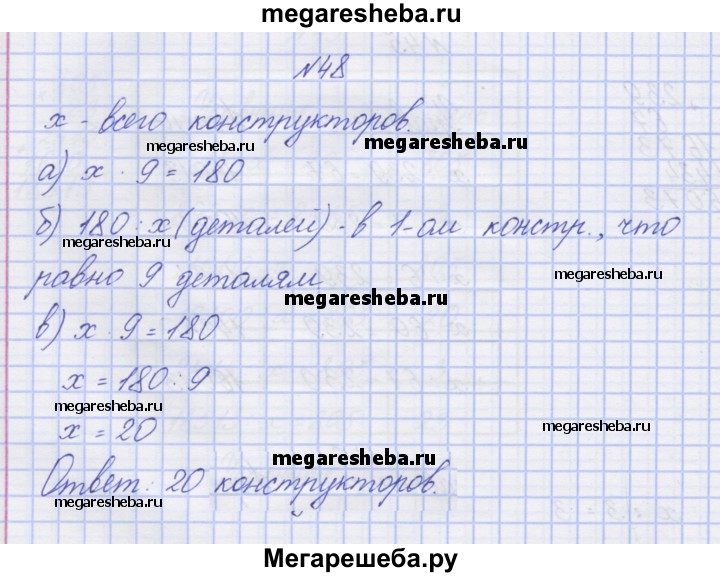 megaresheba.ru
№48
x - всего конструкторов.
megaresheba.ru
megaresheba.ru
а) x · 9 = 180
б) 180 : x (деталей) - в 1-ом констр., что
megaresheba.ru
равно 9 деталям
megaresheba.ru
megaresheba.ru
в) x · 9 = 180
x = 180 : 9
megaresheba.ru
megaresheba.ru
x = 20
megaresheba.ru
Ответ: 20 конструкторов.
megaresheba.ru
Мегарешеба.ру